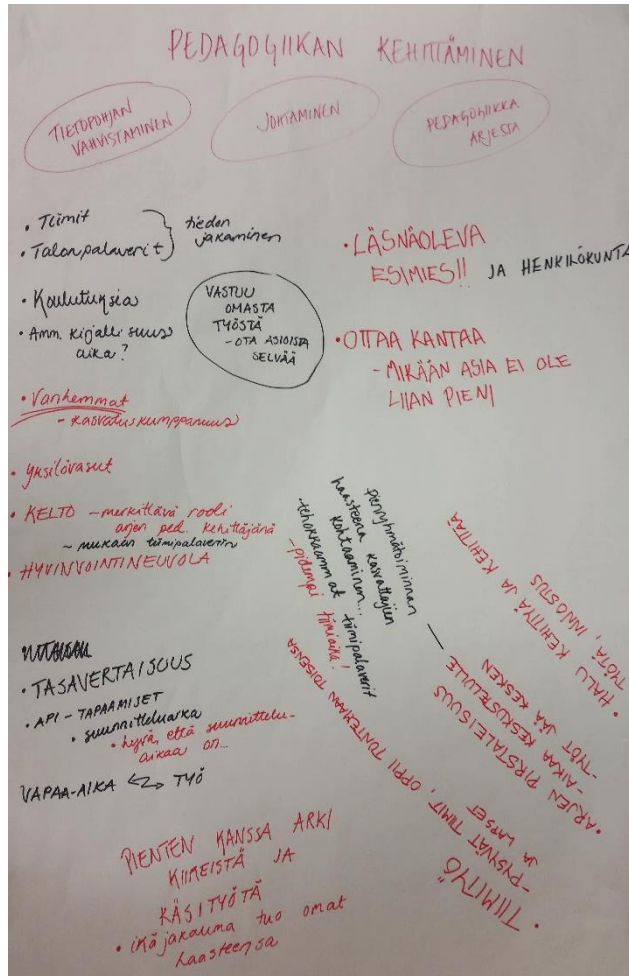 PEDAGOGIIKAN KEHITTÄMINEN
TIETOPOHJAN
VAHVISTAMINEN
JOHTAMINEN
PEDAGOGIIKKA
ARJESTA
• Tiimit
• Talon palaverit
tiedon
jakaminen
• Koulutuksia
• Amm. kirjallisuus
aika?
VASTUU
OMASTA
TYÖSTÄ
- OTA ASIOISTA
SELVÄÄ
• Vanhemmat
- kasvatuskumppanuus
• yksilövasut
• KELTO - merkittävä rooli
arjen ped. kehittäjänä
- mukaan tiimipalaveriin
• HYVINVOINTINEUVOLA
• TASAVERTAISUUS
• API - TAPAAMISET
• suunnitteluaika
• hyvä, että suunnittelu-
aikaa on...
VAPAA-AIKA ↔ TYÖ
PIENTEN KANSSA ARKI
KIIREISTÄ JA
KÄSITYÖTÄ
• ikäjakauma tuo omat
haasteensa
• LÄSNÄOLEVA
ESIMIES!! JA HENKILÖKUNTA
• OTTAA KANTAA
- MIKÄÄN ASIA EI OLE
LIIAN PIENI
pienryhmätoiminnan
haasteena kasvattajien
kohtaaminen...
tehokkaammat tiimipalaverit
- pidempi tiimiaika!
• HALU KEHITTYÄ JA KEHITTÄÄ
TYÖTÄ, INNOSTUS
• ARJEN PIRSTALEISUUS
- AIKAA KESKUSTELUILLE
- TYÖT JÄÄ KESKEN
• TIIMITYÖ
- PYSYVÄT TIIMIT, OPPII TUNTEMAAN TOISENSA
JA LAPSET